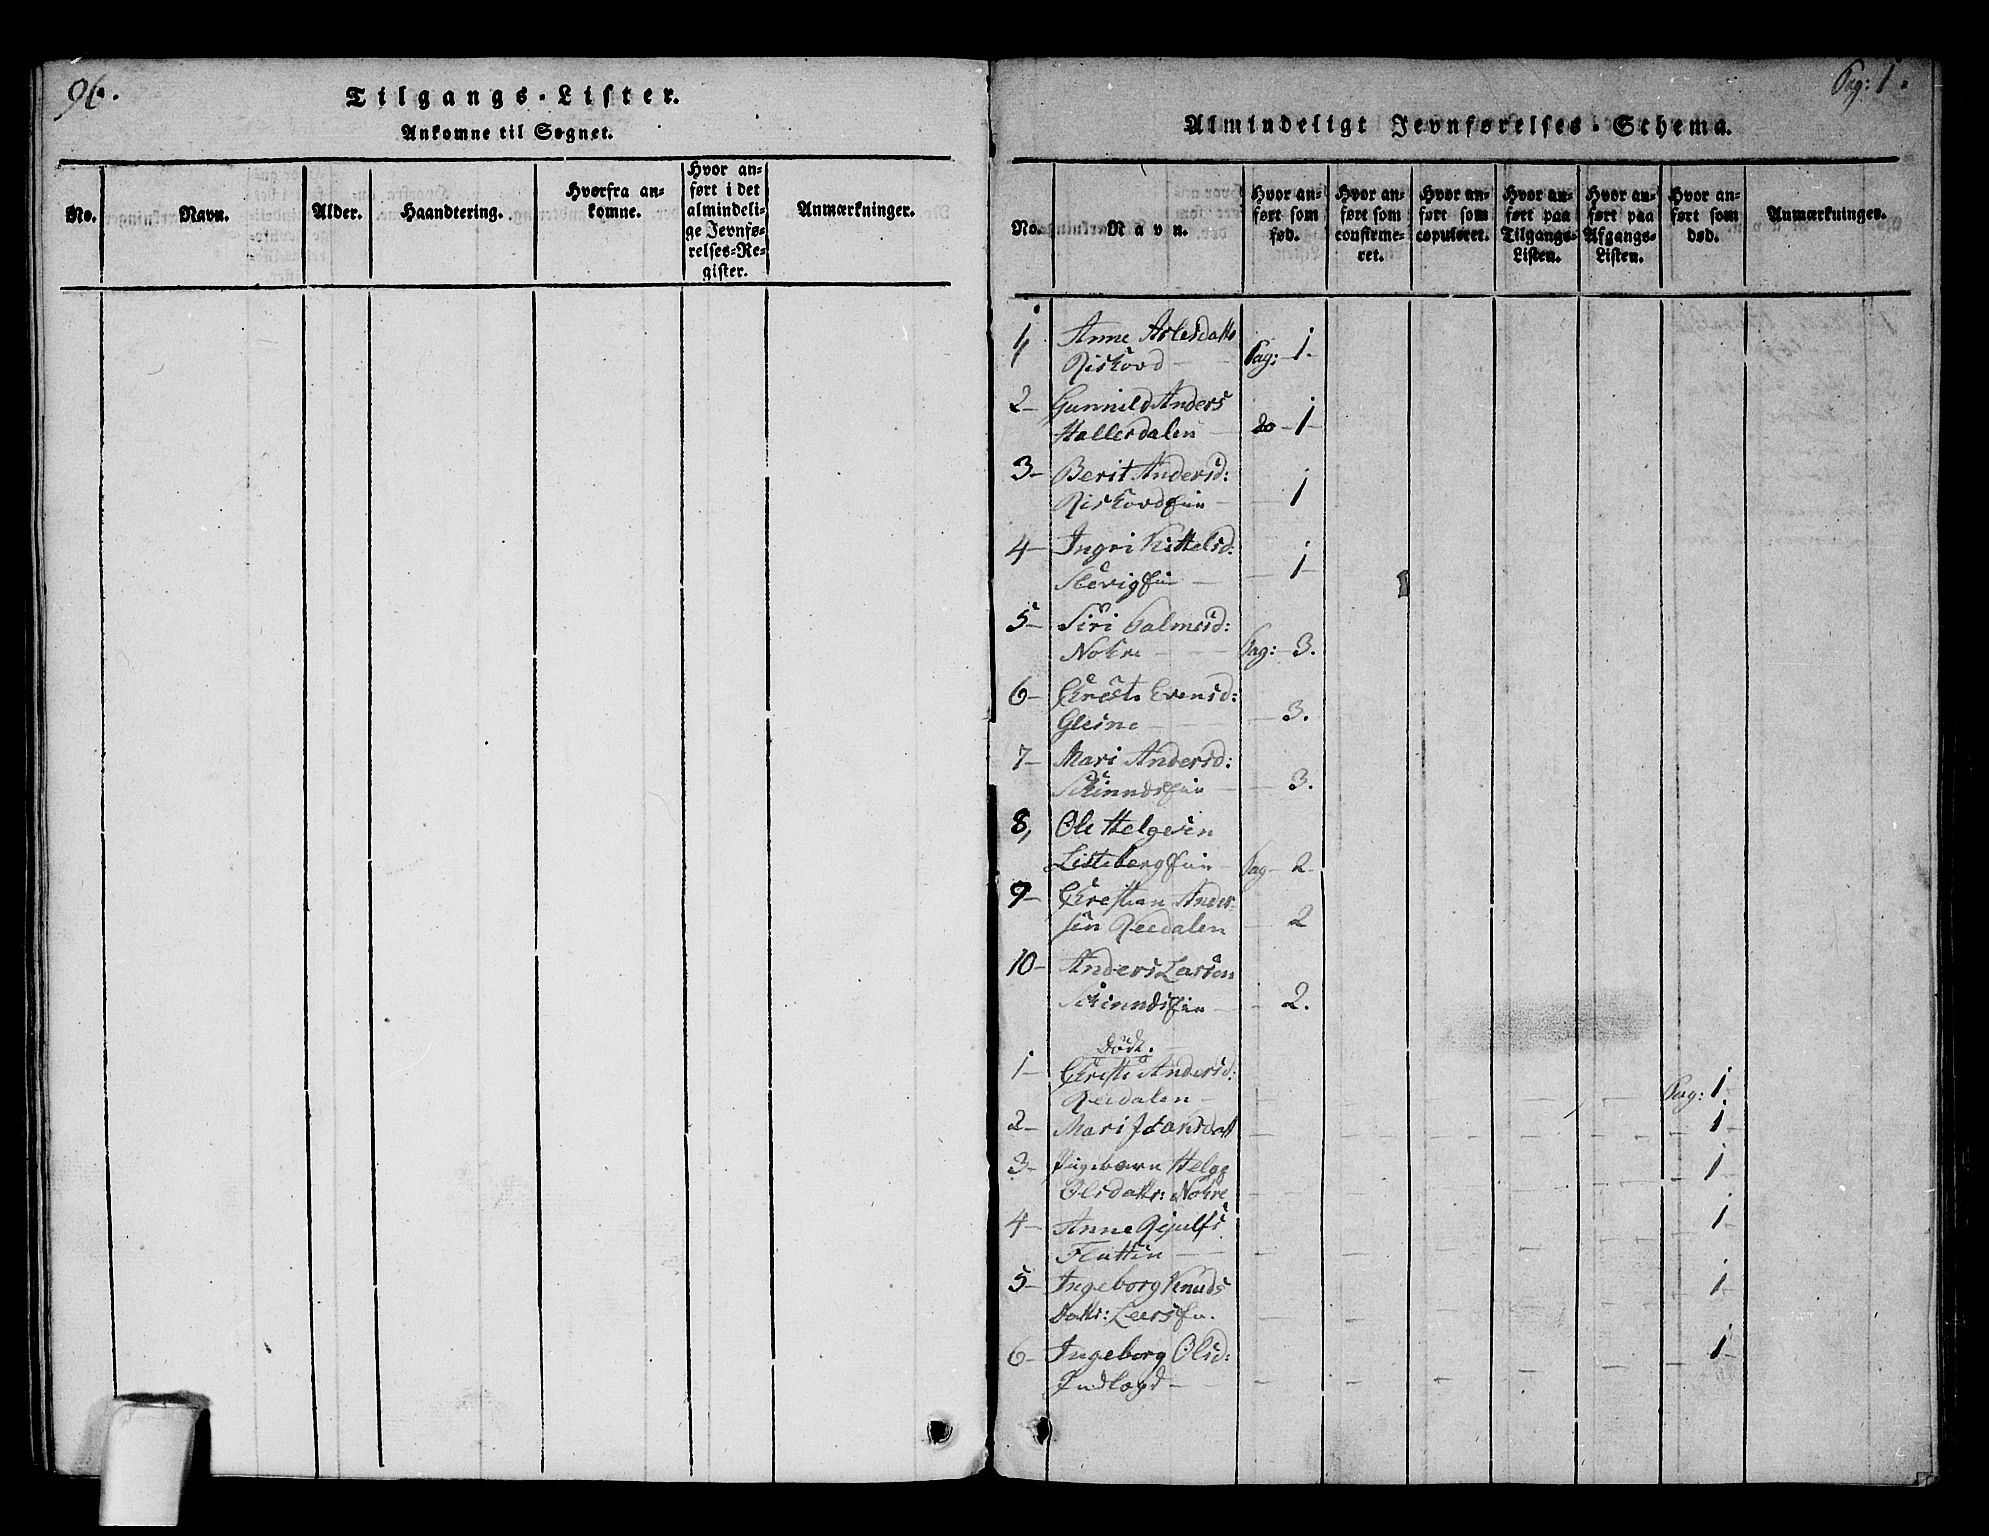 96.
Tilgangs-Lister.
Ankomne til Sognet.
No.
Navn.
Alder.
Haandtering.
Hvorfra an-
komne.
Hvor an-
ført i det
almindeli-
ge Jevnfø-
relses-Re-
gister.
Anmærkninger.
Pag: 1.
Almindeligt Jevnførelses-Schema.
No.
Navn.
Hvor an-
ført som
fød.
Hvor an-
ført som
confirme-
ret.
Hvor an-
ført som
copuleret.
Hvor an-
ført paa
Tilgangs-
Listen.
Hvor an-
ført paa
Afgangs-
Listen.
Hvor an-
ført som
død.
Anmærkninger.
1 Anne Aslesdatt
Riskovd - Pag: 1.
2 - Gunnild Anders
Hallesdalen - do - 1 -
3 - Berit Andersd:
- 1
4 - Ingri Kittelsd:
- 1 -
5 - Siri Palmesd:
Nokre - Pag: 3.
6 - Christi Evensd:
Glesne - 3.
7 - Mari Andersd:
- 3.
8, Ole Helgesen
Pag - 2
9 - Christian Ander-
sen Reedalen - 2
10 - Anders Larsen
- 2.
Døde.
1 - Christi Andersd:
Reedalen - Pag: 1.
2 - Mari - 1 -
3 - Helge
Olsdatt: Nokre - 1 -
4 - Anne
Flattin - 1 -
5 - Ingeborg Knuds
Datt: - 1 -
6 - Ingeborg Olsd:
Indlagd - 1 -